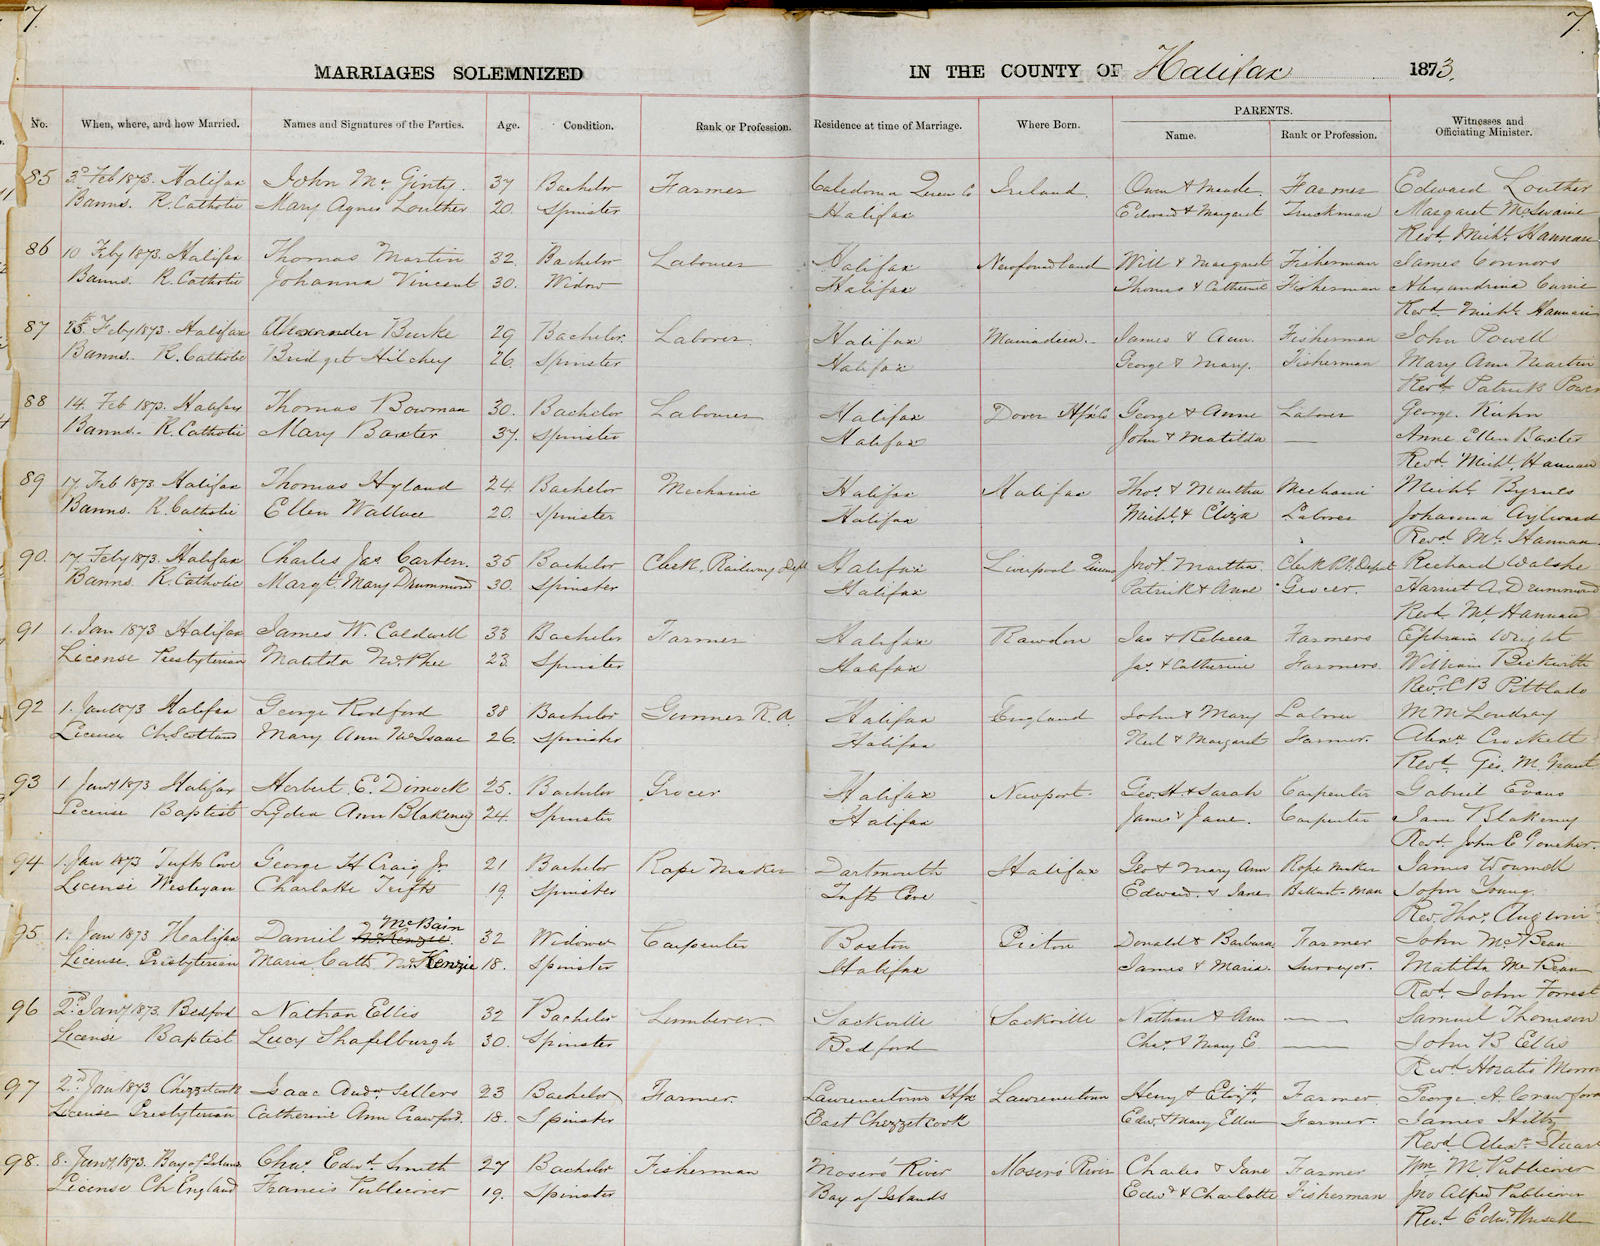 7. 7.
MARRIAGES SOLEMNIZED IN THE COUNTY OF Halifax 1873.
No. When, where, and how Married. Names and Signatures of the Parties. Age. Condition. Rank or Profession. Residence at time of Marriage. Where Born. PARENTS. Name. Rank or Profession. Witnesses and Officiating Minister.
85 3d Feb 1873. Halifax John Mc Ginty. 37 Bachelor Farmer Caledonia Queens Co Ireland Owen & Farmer Edward Louther
Banns. R. Catholic Mary Agnes Louther 20. Spinster Halifax Edward & Margaret Truckman Margaret McSwaine
Revd. Michl. Hannan
86 10 Feby 1873. Halifax Thomas Martin 32. Bachelor Labourer Halifax Newfoundland Will & Margaret Fisherman James Connors
Banns. R. Catholic Johanna Vincent 30. Widow Halifax Thomas & Catherine Fisherman Alexandrina Currie
Revd. Michl. Hannan
87 Feby 1873. Halifax Alexander Burke 29 Bachelor. Laborer. Halifax Mainadieu. James & Ann. Fisherman John Powell
Banns. R. Catholic Bridget Hilchey 26. Spinster Halifax George & Mary. Fisherman Mary Ann Martin
Revd. Patrick Power
88 14. Feb 1873. Halifax Thomas Bowman 30. Bachelor Labourer Halifax Dover Hfx Co George & Anne Laborer George. Kuhn
Banns. R. Catholic Mary Baxter 37. Spinster Halifax John & Matilda — Anne Ellen Baxter
Revd. Michl. Hannan
89 17. Feb 1873. Halifax Thomas Hyland 24. Bachelor Mechanic Halifax Halifax Thos. & Martha Mechanic Michl. Byrnes
Banns. R. Catholic Ellen Wallace 20. Spinster Halifax Michl. & Eliza Laborer Johanna Aylward
Revd. Ml. Hannan
90. 17. Feby 1873. Halifax Charles Jas Carten. 35 Bachelor Clerk, Railway Dept Halifax Liverpool Queens Jno & Martha. Clerk R.R. Dept Richard Walshe
Banns. R. Catholic Margt. Mary Drummond 30. Spinster Halifax Patrick & Anne Grocer. Harriet A. Drummond
Revd. Ml. Hannan
91 1. Jan 1873 Halifax James W. Caldwell 33 Bachelor Farmer Halifax Rawdon Jas & Rebecca Farmers Ephraim Wright
License Presbyterian Matilda McPhee 23. Spinster Halifax Jas. & Catherine Farmers. William Beckwith
Revd. C B Pitblado
92 1. Jan 1873 Halifax George Rodford 38 Bachelor Gunner R.A. Halifax England John & Mary Laborer M M Lindsay
Licence Ch Scotland Mary Ann McIsaac 26. Spinster Halifax Neil & Margaret Farmer. Alexr. Crockett
Revd. Geo. M. Grant
93 1 Jany 1873 Halifax Herbert E. Dimock 25. Bachelor Grocer Halifax Newport. Geo. H & Sarah Carpenter Gabriel Evans
License Baptist Lydia Ann Blakeney 24. Spinster Halifax James & Jane. Carpenter Blakeney
Revd. John E Goucher.
94 1. Jan 1873 Tufts Cove George H Craig Jr. 21 Bachelor Rope Maker Dartmouth Halifax Geo & Mary Ann Rope Maker James Wournell
License Wesleyan Charlotte Tufts 19. Spinster Tufts Cove Edward. & Jane Ballast-man John Young.
Rev. Thos. Angwin
95 1. Jan 1873 Halifax Daniel McKenzie. McBain 32 Widower Carpenter Boston Pictou Donald & Barbara Farmer John McBean
License. Presbyterian Maria Cath McKenzie 18. Spinster Halifax James & Maria. Surveyor. Matilda McBean
Revd. John Forrest
96 2d. Jany 1873. Bedford Nathan Ellis 32 Bachelor Lumberer. Sackville Sackville Nathan & Ann — Samuel Thomson
License Baptist Lucy Shafelburgh 30. Spinster Bedford Chas. & Mary E. — John B Ellis
Revd. Horatio Morrow
97 2d Jan 1873 Chezzetcook Isaac Andw Sellers 23 Bachelor Farmer. Lawrencetown Hfx Lawrencetown Henry & Elizth. Farmer. George A. Crawford
License Presbyterian Catherine Ann Crawford. 18. Spinster East Chezzetcook Edwd. & Mary Ellen Farmer. James Hiltz
Revd Alexr. Stuart
98. 8. Jany. 1873. Bay of Islands Chas. Edwd. Smith 27 Bachelor Fisherman Mosers' River Mosers' River Charles & Jane Farmer Wm. M. Publicover
License Ch England Francis Publicover 19. Spinster Bay of Islands Edwd & Charlotte Fisherman Jno Alfred Publicover
Revd. Edwd.